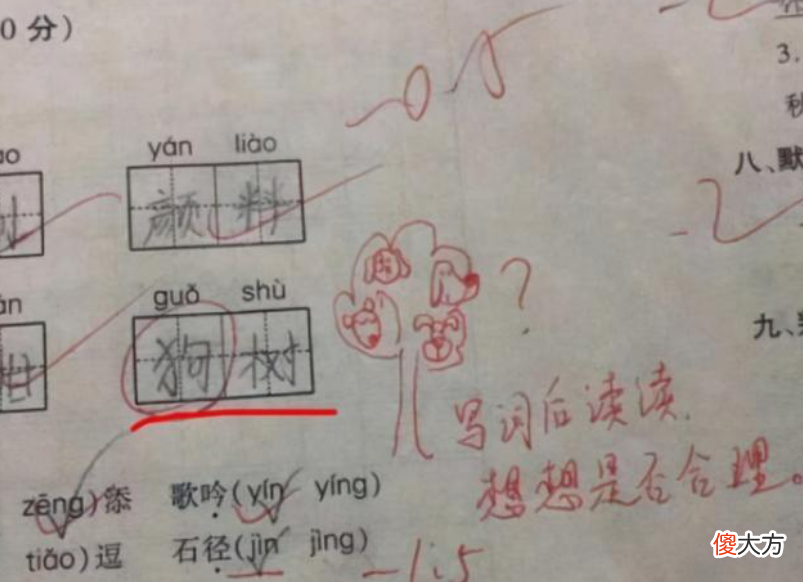 0分)
3.
yán liào
颜料
八、默
guǒ shù
狗树
?
九、
写词后读读，
想想是否合理。
zēng)添 歌吟(yín yíng)
tiǎo)逗 石径(jìn jìng)
-1.5
傻大方